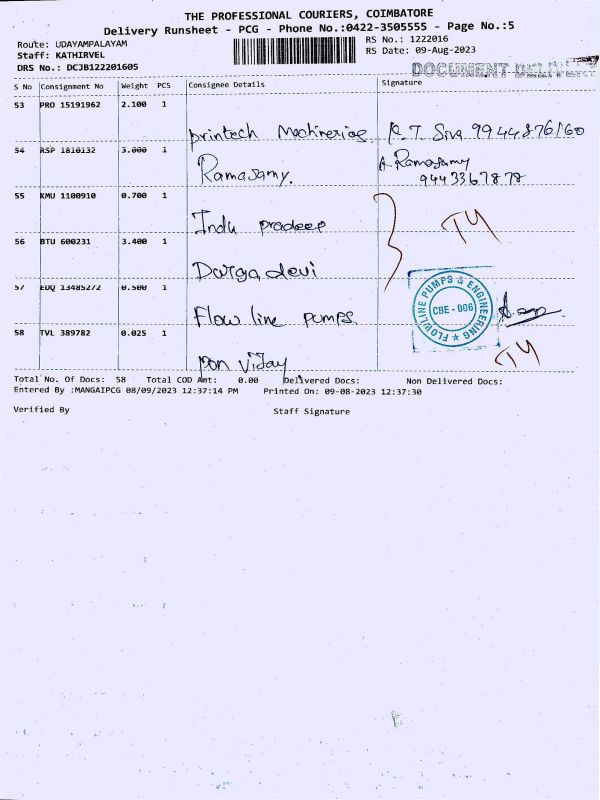 THE PROFESSIONAL COURIERS, COIMBATORE
Delivery Runsheet - PCG - Phone No.:0422-3505555 - Page No.:5
Route: UDAYAMPALAYAM
RS No.: 1222016
Staff: KATHIRVEL
RS Date: 09-Aug-2023
DRS No.: DCJB122201605
DOCUMENT
S No Consignment No Weight PCS Consignee Details Signature
53 PRO 15191962 2.100 1
printech Machineries. R. T. Siva 9944876160
54 RSP 1810132 3.000 1
Ramasamy. A. Ramasamy
9443367878
55 KMU 1100910 0.700 1
Indu pradeep
56 BTU 600231 3.400 1
Durga devi
57 EDQ 13485272 0.500 1
Flow line pumps.
FLOWLINE PUMPS & ENGINEERING
CBE - 006
58 TVL 389782 0.025 1
pon vijay
Total No. Of Docs: 58 Total COD Amt: 0.00 Delivered Docs: Non Delivered Docs:
Entered By :MANGAIPCG 08/09/2023 12:37:14 PM Printed On: 09-08-2023 12:37:30
Verified By Staff Signature